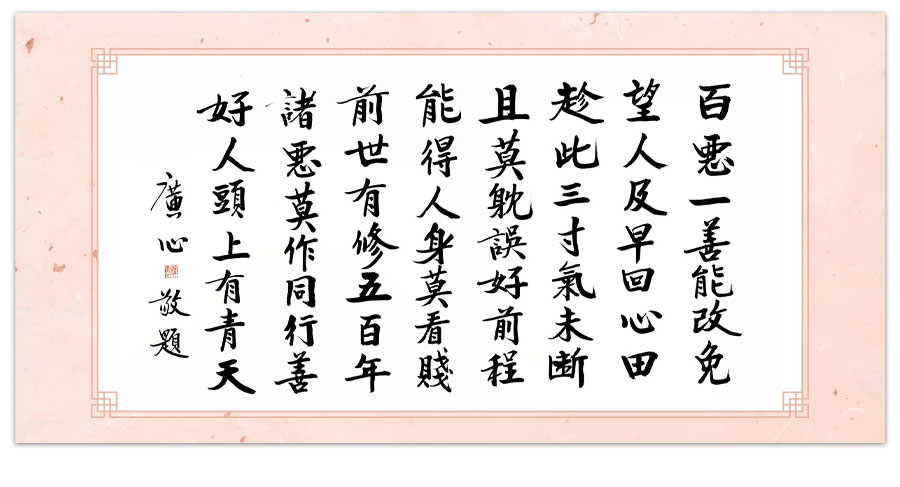 百惡一善能改免
望人及早回心田
趁此三寸氣未断
且莫躭誤好前程
能得人身莫看賤
前世有修五百年
諸惡莫作同行善
好人頭上有青天
廣心 敬題